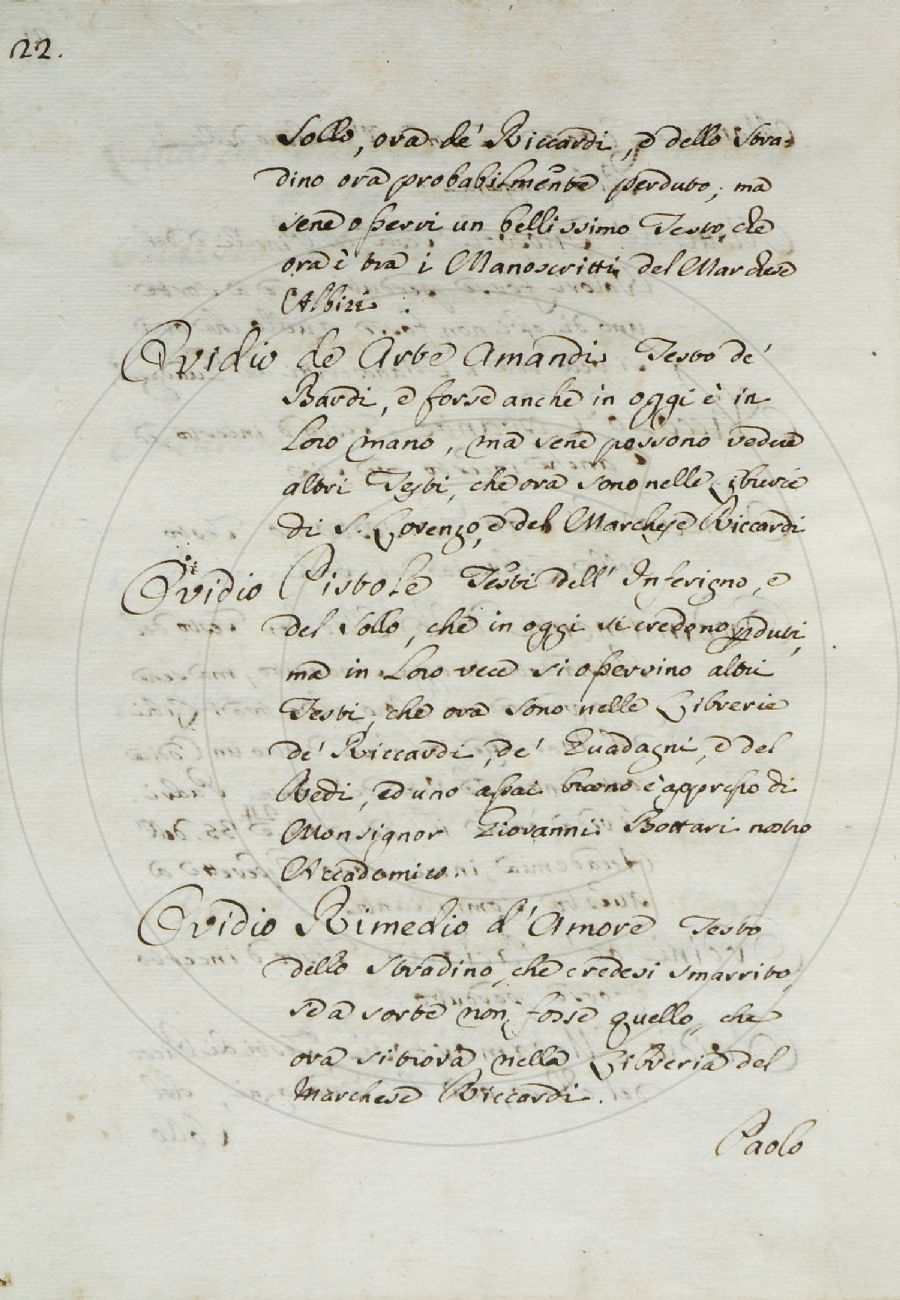 22.
Sollo, ora de' Riccardi, e dello Stra-
dino ora probabilmente perduto; ma
sene osservi un bellissimo Testo, che
ora è tra i Manoscritti del Marchese
Albizi.
Ovidio de Arte Amandi Testo de'
Bardi, e forse anche in oggi è in
Loro mano, ma sene possono vedere
altri Testi, che ora sono nelle Librerie
di S. Lorenzo, e del Marchese Riccardi
Ovidio Pistole Testi dell' Inferigno, e
del Sollo, che in oggi si credono pduti,
ma in Loro vece si osservino altri
Testi, che ora sono nelle Librerie
de' Riccardi, de' Guadagni, e del
Redi, ed uno assai buono è appresso di
Monsignor Giovanni Bottari nostro
Accademico
Ovidio Rimedio d'Amore Testo
dello Stradino, che credesi smarrito,
se a sorte non fosse quello, che
ora si trova nella Libreria del
Marchese Riccardi.
Paolo